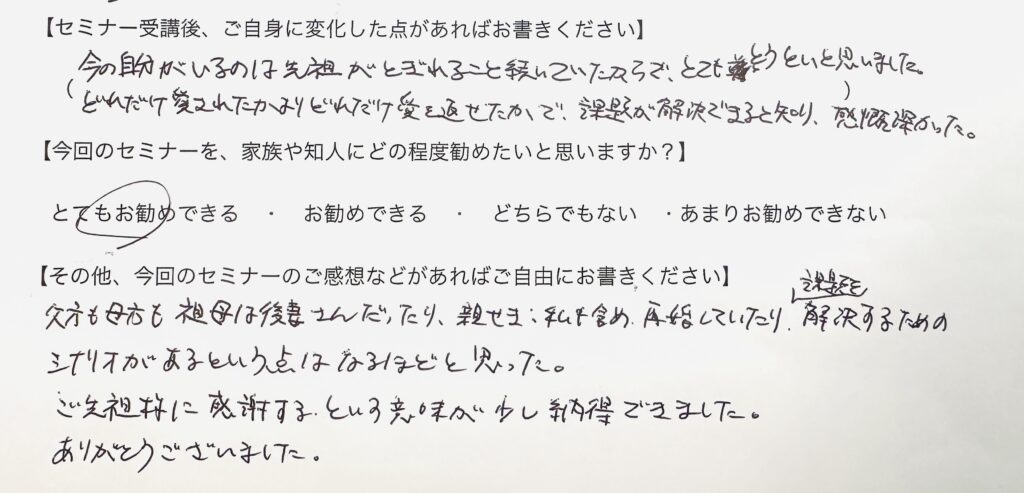 【セミナー受講後、ご自身に変化した点があればお書きください】
今の自分がいるのは先祖がとぎれること続いていたからで、とてもとうといと思いました。
(どれだけ愛されたかよりどれだけ愛を返せたかで、課題が解決できると知り、)感慨深かった。
【今回のセミナーを、家族や知人にどの程度勧めたいと思いますか？】
とてもお勧めできる ・ お勧めできる ・ どちらでもない ・あまりお勧めできない
【その他、今回のセミナーのご感想などがあればご自由にお書きください】
父方も母方も祖母は後妻さんだったり、親せき、私を含め、再婚していたり、課題を解決するための
シナリオがあるという点はなるほどと思った。
ご先祖様に感謝する、という意味が少し納得できました。
ありがとうございました。